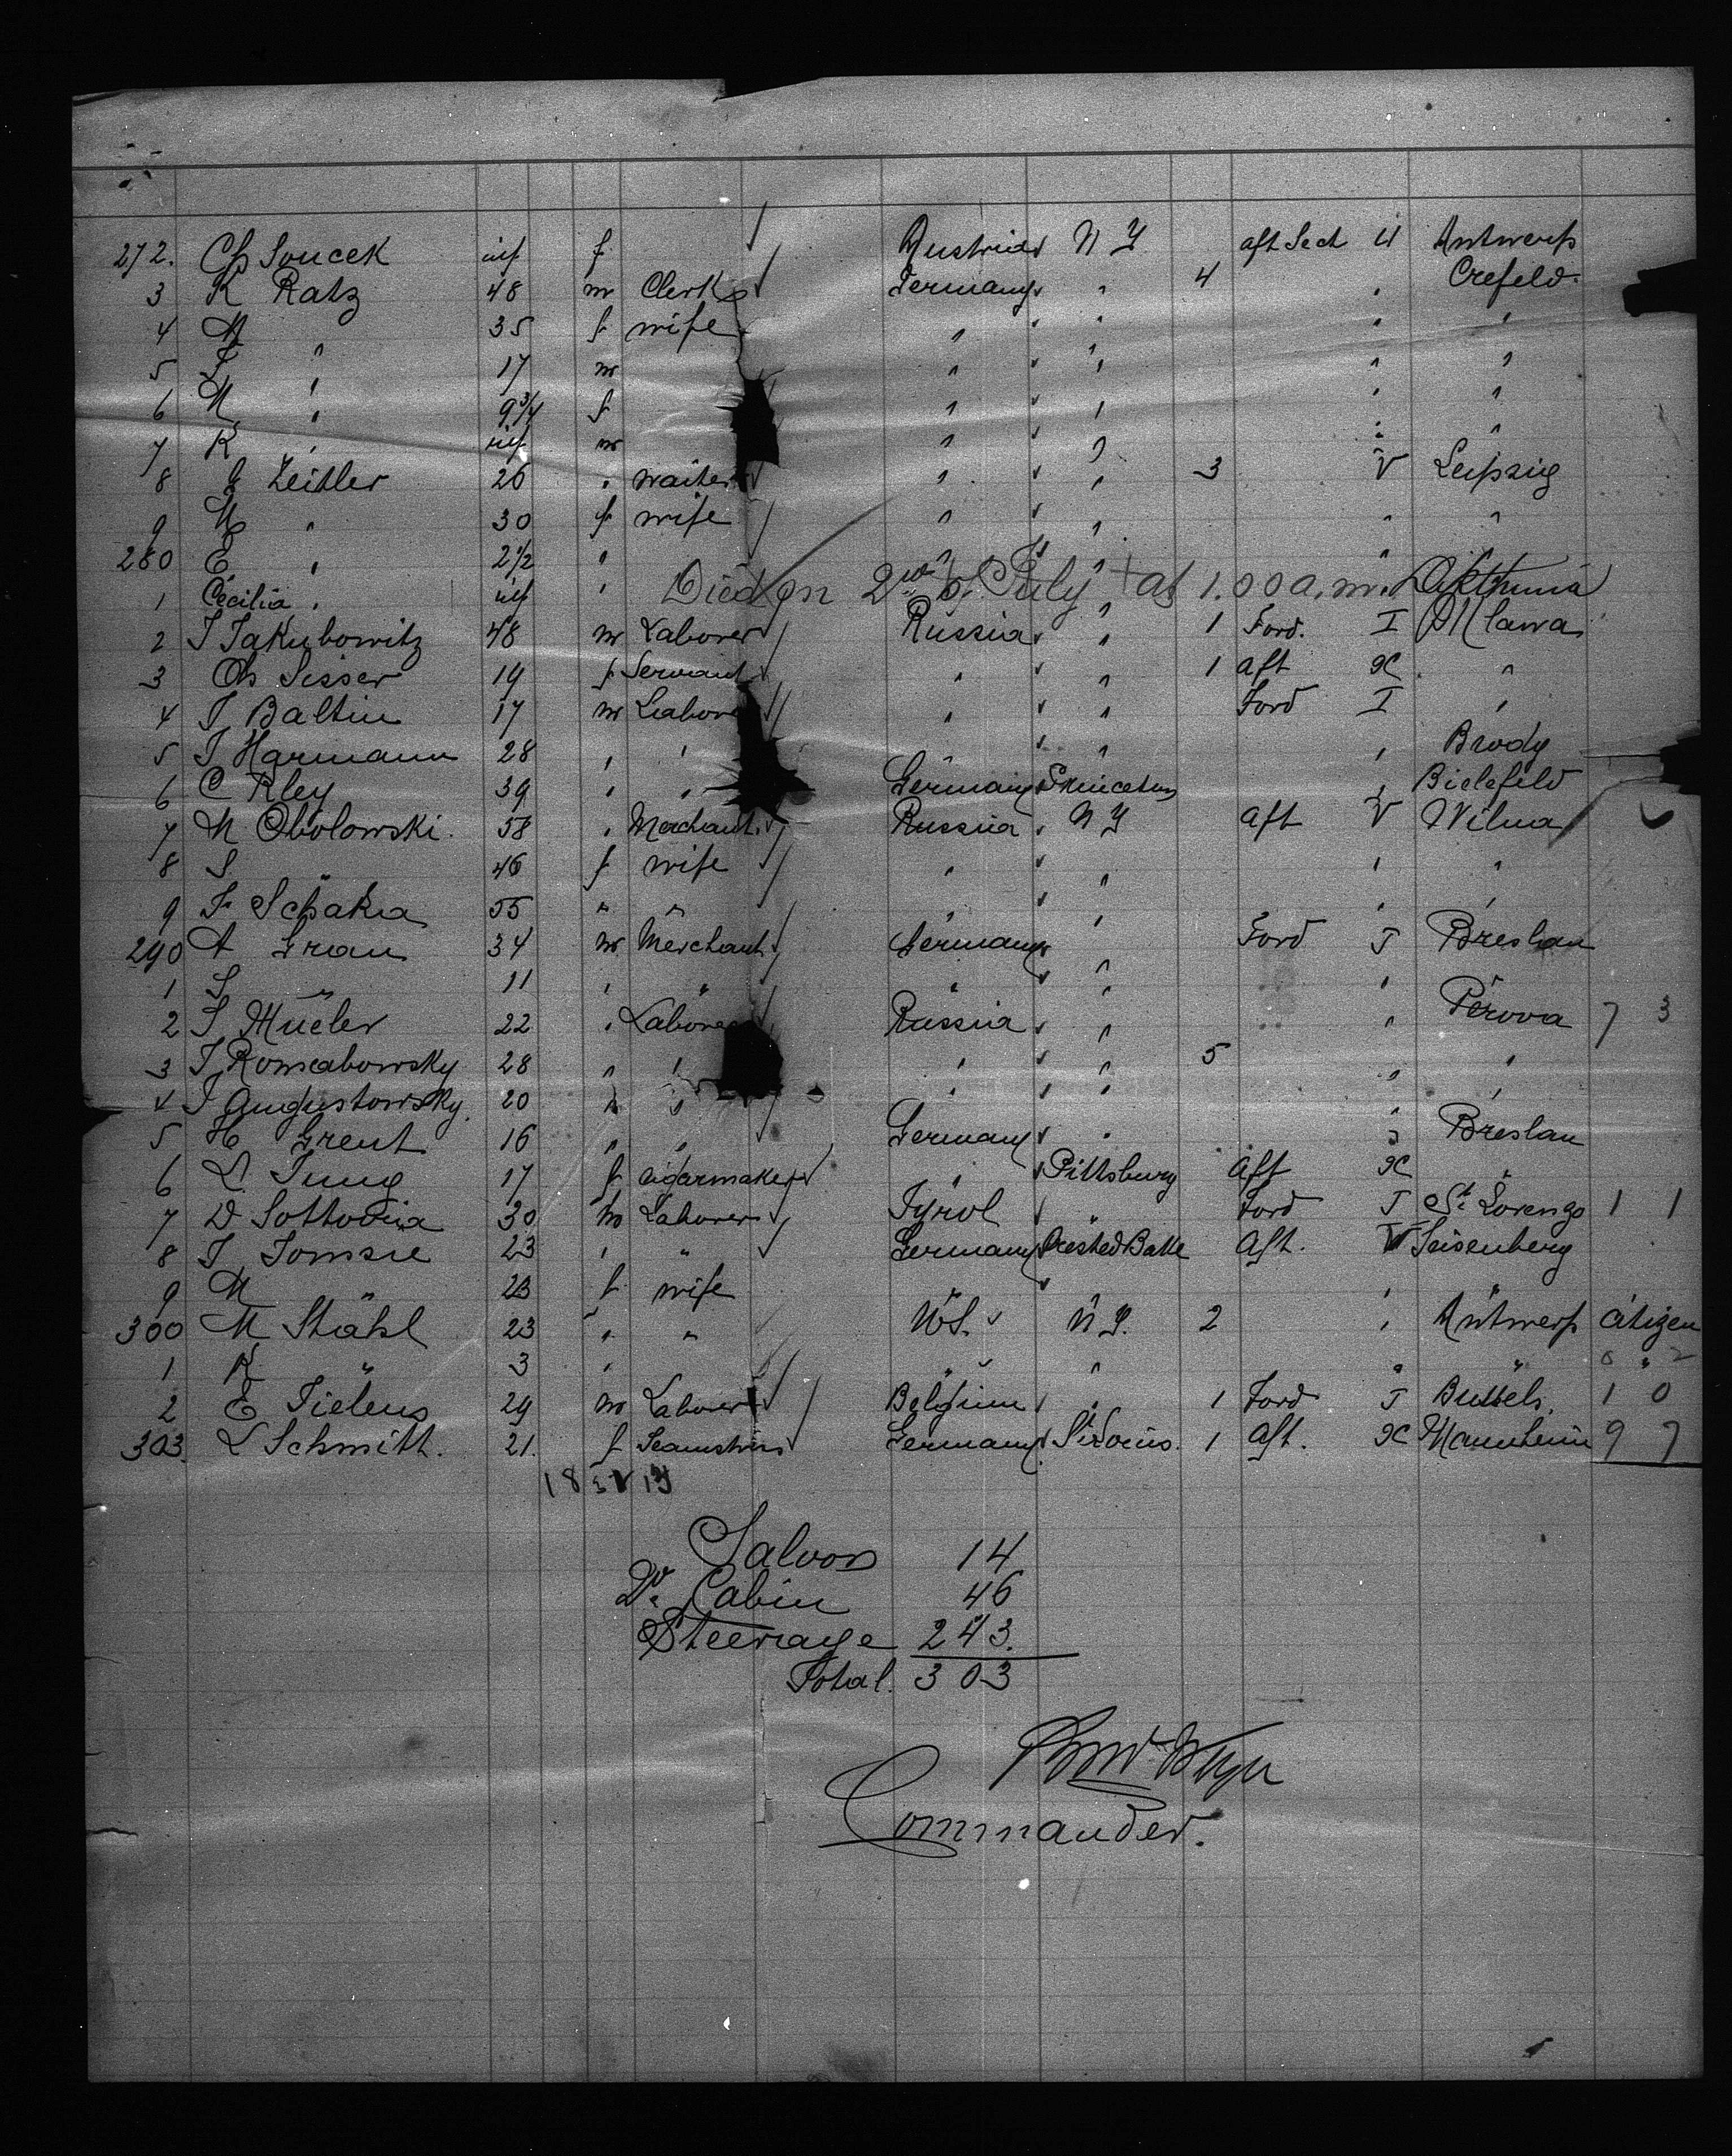 272. Ch Soucek inf f Austria N Y aft Sect 4 Antwerp
3 K Ratz 48 m Clerk Germany " 4 " Crefeld.
4 M " 35 f wife " " " "
5 " 17 m " " " "
6 M " 9 3/4 f " " " "
7 K " inf m " " " "
8 G Zeitler 26 " waiter " " 3 V Leipzig
9 M " 30 f wife " " " "
280 E " 2 1/2 " " " "
1 Cecilia " inf " Died on 2nd of July at 1.00 a.m.
2 J Jakubowitz 48 m Laborer Russia " 1 Ford. I Mlawa
3 Ch Sisser 19 f Servant " " 1 aft "
4 J Baltin 17 m Labore " " Ford I "
5 J Harmann 28 " " " " " Brody
6 C Kley 39 " " Germany Princeton " Bielefeld
7 M Obolowski 58 " Merchant Russia N Y aft V Wilna
8 S " 46 f wife " " " "
9 F Schakia 55 " " " " " "
290 A Grau 34 m Merchant Germany Ford I Breslau
1 S " 11 " " " " "
2 J Mueler 22 " Labore Russia " " Perova 7 3
3 J Romcabowsky 28 " " " " 5 " "
4 J Augustowsky 20 " " " " "
5 H Grent 16 " " Germany " " Breslau
6 L. Jung 17 f cigarmaker " Pittsburg aft "
7 D Sottovia 30 m Laborer Tyrol Ford I St Lorengo 1 1
8 J Tomsie 23 " " Germany Crested Butte Aft. V Seisenberg
9 M " 23 f wife "
300 M Stahl 23 " " US. N Y. 2 " Antwerp citizen
1 K " 3 " " " "
2 E Tielens 29 m Laborer Belgium " 1 Ford I Bussels, 1 0
303. L Schmitt. 21. f Seamstress Germany St Louis. 1 Aft. Mannheim 9 7
Saloon 14
Do Cabin 46
Steerage 243.
Total. 303
Commander.